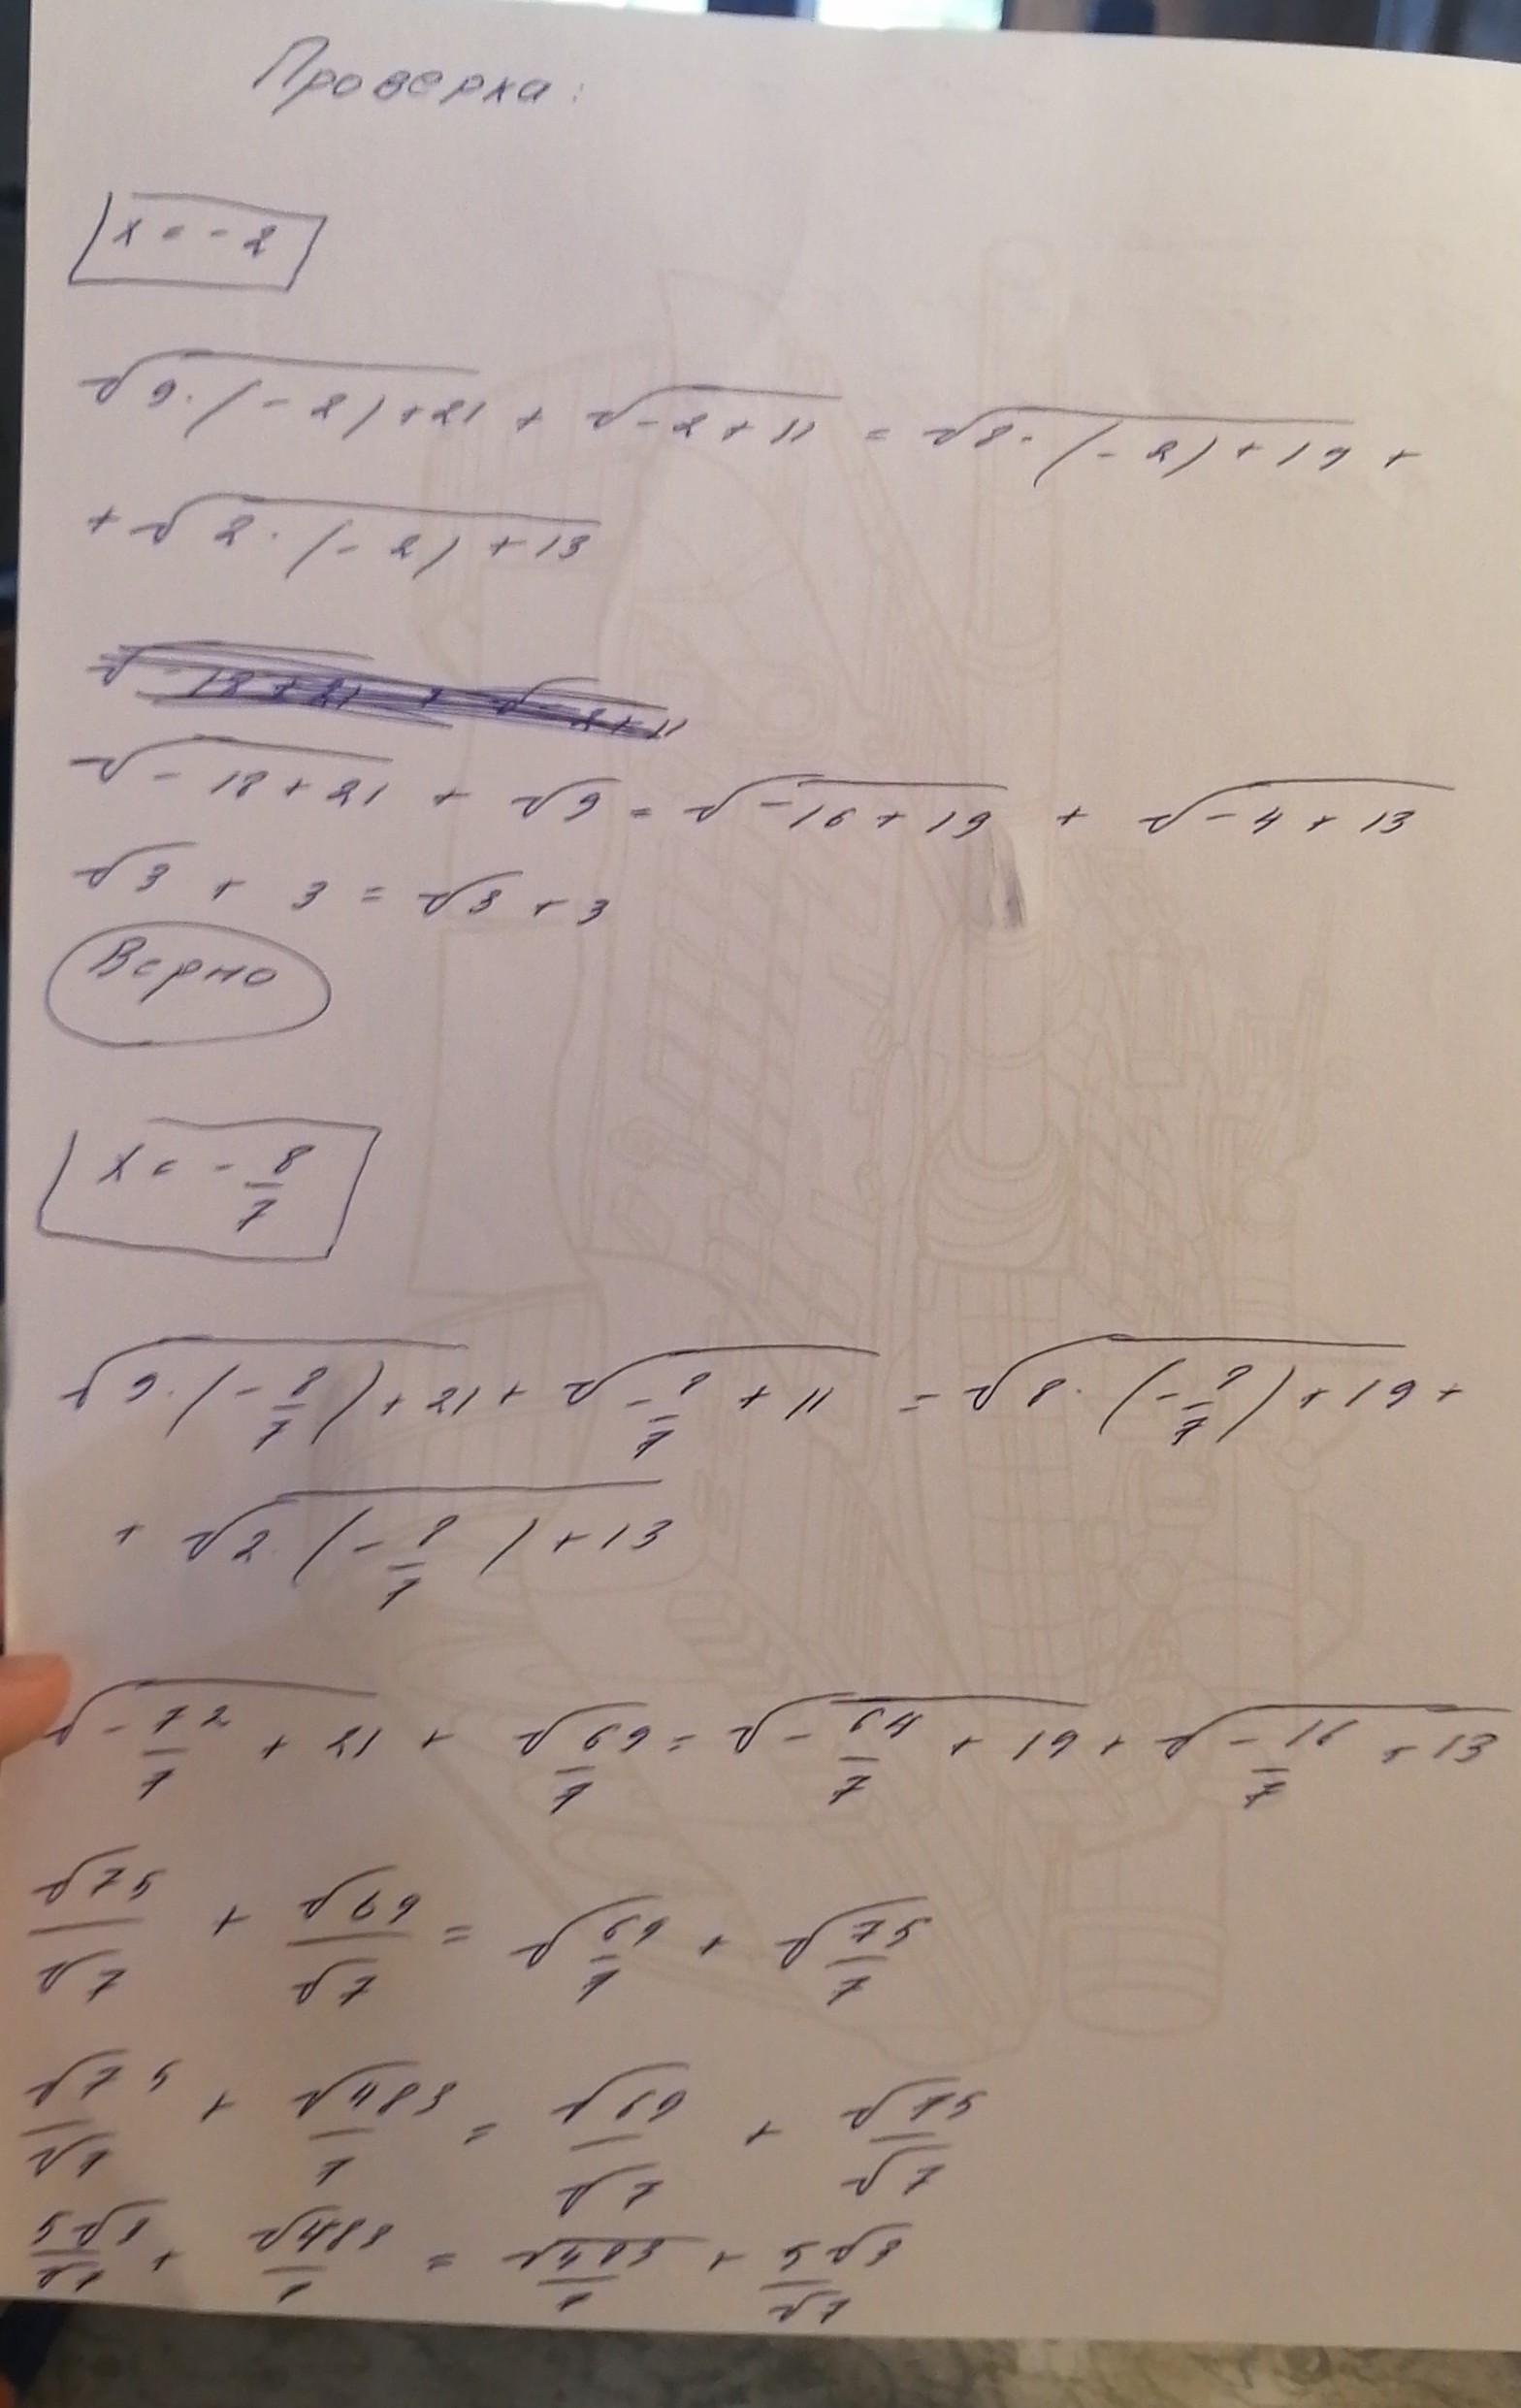 Проверка:
x = -2
√(9·(-2)+21) + √(-2+11) = √(8·(-2)+19) +
+ √(2·(-2)+13)
√(-18+21) + √9 = √(-16+19) + √(-4+13)
√3 + 3 = √3 + 3
Верно
x = -8/7
√(9·(-8/7)+21) + √(-8/7+11) = √(8·(-8/7)+19) +
+ √(2·(-8/7)+13)
√(-72/7+21) + √(69/7) = √(-64/7+19) + √(-16/7+13)
√75/√7 + √69/√7 = √(69/7) + √(75/7)
√75/√7 + √483/7 = √69/√7 + √75/√7
5√3/√7 + √483/7 = √483/7 + 5√3/√7